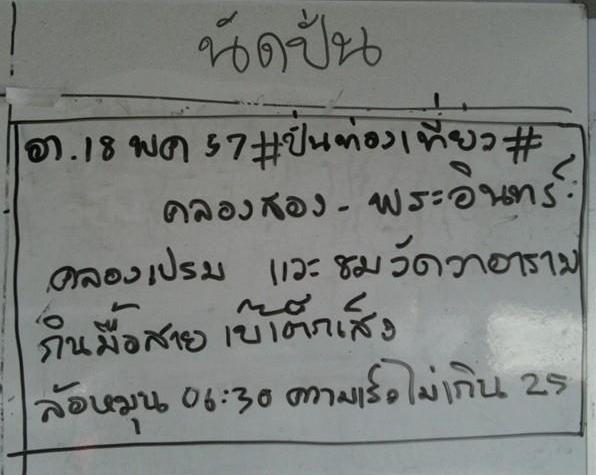 นัดปั่น
อา.18 พค 57 #ปั่นท่องเที่ยว#
คลองสอง - พระอินทร์:
คลองเปรม แวะชมวัดวาอาราม
กินมื้อสาย เบ๊เต็กเส็ง
ล้อหมุน 06:30 ความเร็วไม่เกิน 25